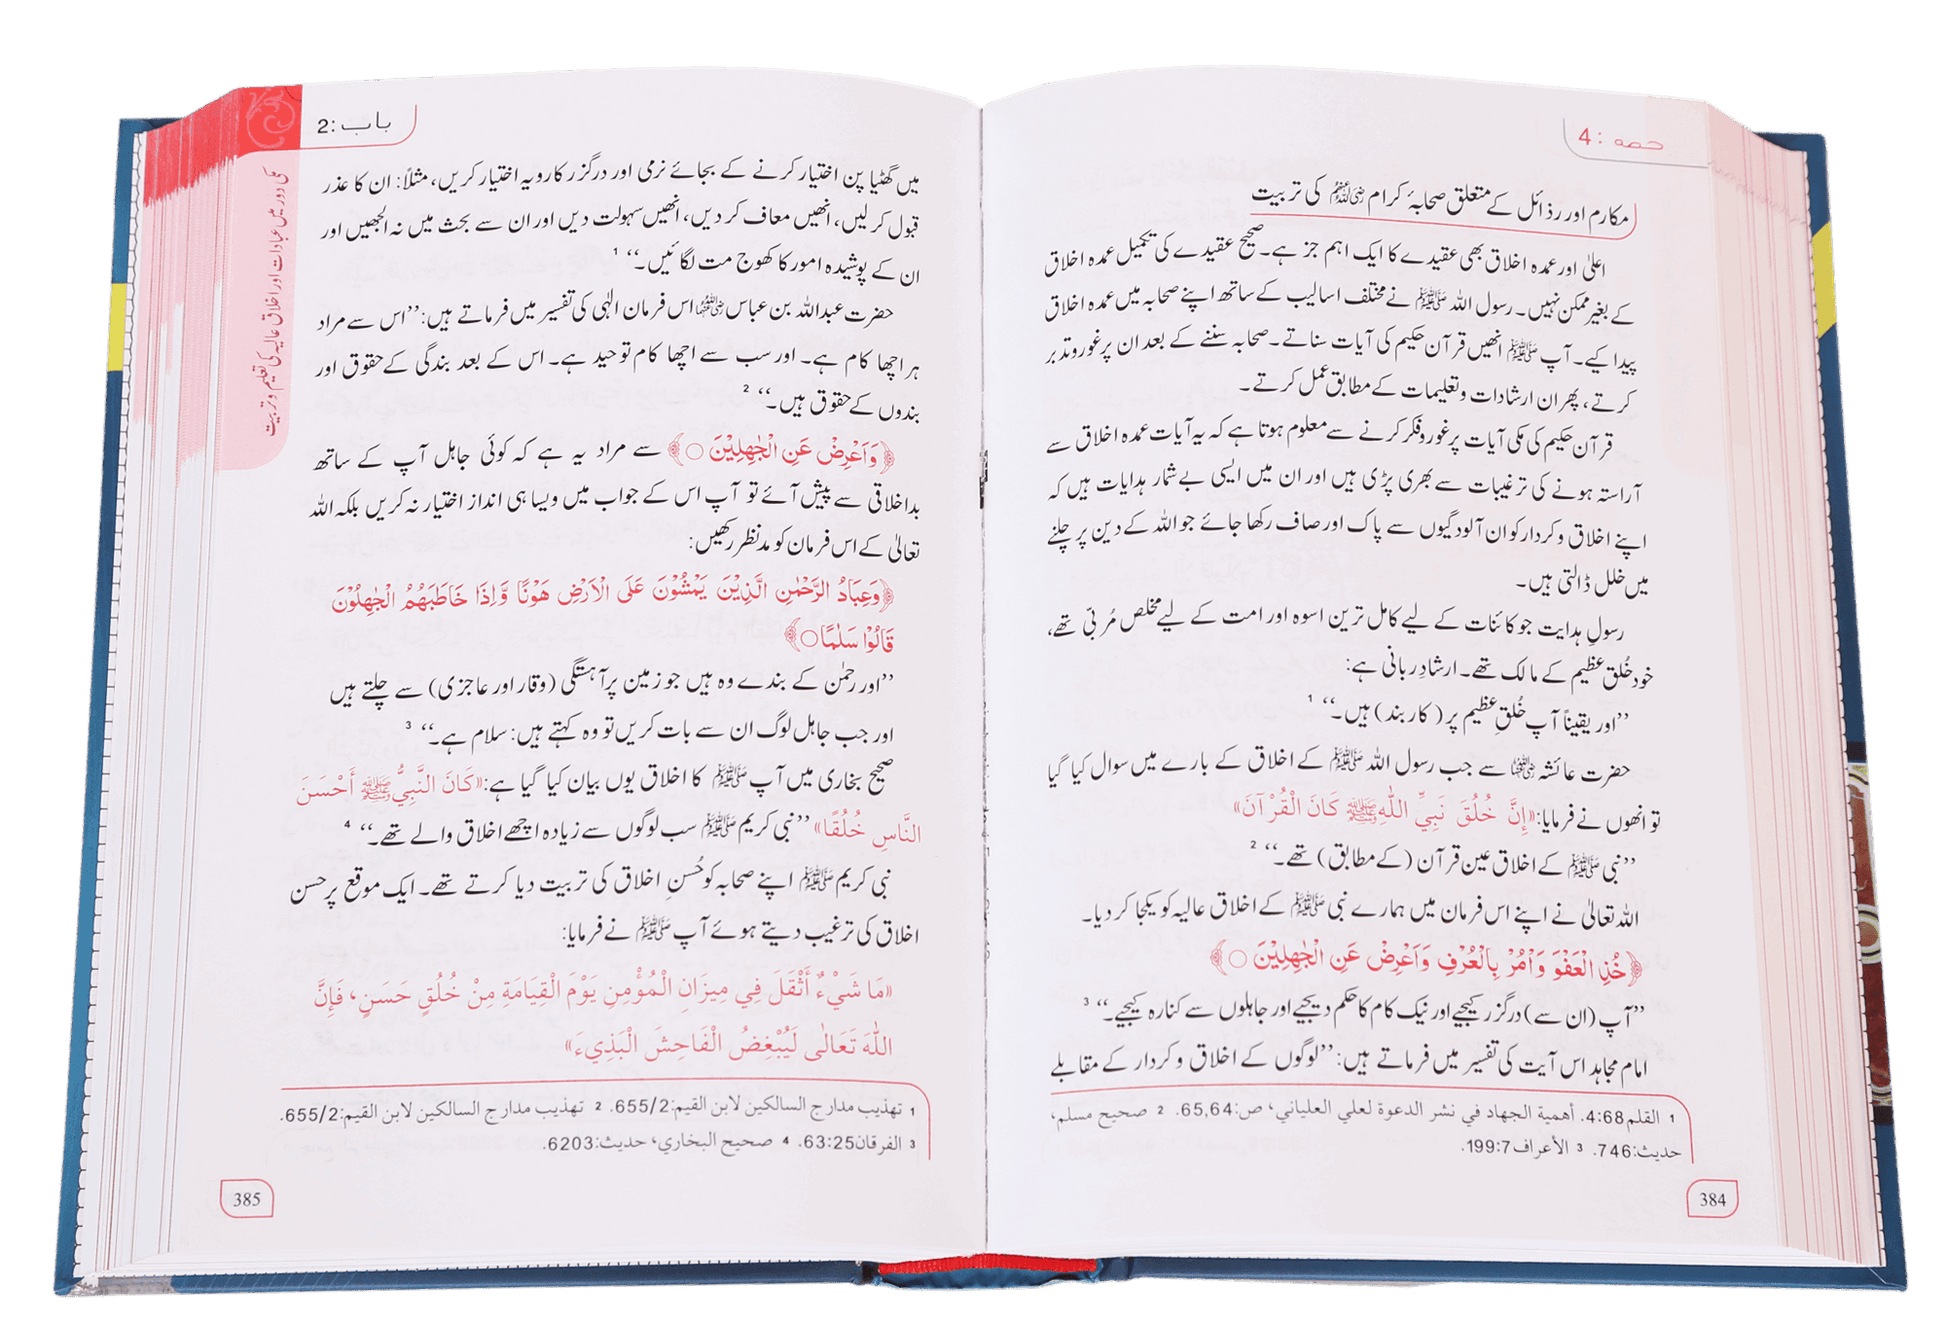 حصہ : 4
مکارم اور رذائل کے متعلق صحابۂ کرام رضی اللہ عنہم کی تربیت
اعلیٰ اور عمدہ اخلاق بھی عقیدے کا ایک اہم جز ہے۔ صحیح عقیدے کی تکمیل عمدہ اخلاق
کے بغیر ممکن نہیں۔ رسول اللہ ﷺ نے مختلف اسالیب کے ساتھ اپنے صحابہ میں عمدہ اخلاق
پیدا کیے۔ آپ ﷺ انھیں قرآن حکیم کی آیات سناتے۔ صحابہ سننے کے بعد ان پر غور و تدبر
کرتے، پھر ان ارشادات و تعلیمات کے مطابق عمل کرتے۔
قرآن حکیم کی مکی آیات پر غور و فکر کرنے سے معلوم ہوتا ہے کہ یہ آیات عمدہ اخلاق سے
آراستہ ہونے کی ترغیبات سے بھری پڑی ہیں اور ان میں ایسی بے شمار ہدایات ہیں کہ
اپنے اخلاق و کردار کو ان آلودگیوں سے پاک اور صاف رکھا جائے جو اللہ کے دین پر چلنے
میں خلل ڈالتی ہیں۔
رسولِ ہدایت جو کائنات کے لیے کامل ترین اسوہ اور امت کے لیے مخلص مُربّی تھے،
خود خُلق عظیم کے مالک تھے۔ ارشادِ ربانی ہے:
’’اور یقیناً آپ خُلقِ عظیم پر (کاربند) ہیں۔‘‘ 1
حضرت عائشہ رضی اللہ عنہا سے جب رسول اللہ ﷺ کے اخلاق کے بارے میں سوال کیا گیا
تو انھوں نے فرمایا: «إِنَّ خُلُقَ نَبِيِّ اللّٰهِ ﷺ كَانَ الْقُرْآنَ»
’’نبی ﷺ کے اخلاق عین قرآن (کے مطابق) تھے۔‘‘ 2
اللہ تعالیٰ نے اپنے اس فرمان میں ہمارے نبی ﷺ کے اخلاق عالیہ کو یکجا کر دیا۔
﴿خُذِ الْعَفْوَ وَاْمُرْ بِالْعُرْفِ وَاَعْرِضْ عَنِ الْجٰهِلِيْنَ ○﴾
’’آپ (ان سے) درگزر کیجیے اور نیک کام کا حکم دیجیے اور جاہلوں سے کنارہ کیجیے۔‘‘ 3
امام مجاہد اس آیت کی تفسیر میں فرماتے ہیں: ’’لوگوں کے اخلاق و کردار کے مقابلے
1 القلم 4:68. أهمية الجهاد في نشر الدعوة لعلي العلياني، ص:65,64. 2 صحيح مسلم،
حديث:746. 3 الأعراف 199:7.
384
باب :2
مکی دور میں عبادات اور اخلاق عالیہ کی تعلیم و تربیت
میں گھٹیا پن اختیار کرنے کے بجائے نرمی اور درگزر کا رویہ اختیار کریں، مثلاً: ان کا عذر
قبول کر لیں، انھیں معاف کر دیں، انھیں سہولت دیں اور ان سے بحث میں نہ الجھیں اور
ان کے پوشیدہ امور کا کھوج مت لگائیں۔‘‘ 1
حضرت عبداللہ بن عباس رضی اللہ عنہما اس فرمان الٰہی کی تفسیر میں فرماتے ہیں: ’’اس سے مراد
ہر اچھا کام ہے۔ اور سب سے اچھا کام توحید ہے۔ اس کے بعد بندگی کے حقوق اور
بندوں کے حقوق ہیں۔‘‘ 2
﴿وَاَعْرِضْ عَنِ الْجٰهِلِيْنَ ○﴾ سے مراد یہ ہے کہ کوئی جاہل آپ کے ساتھ
بداخلاقی سے پیش آئے تو آپ اس کے جواب میں ویسا ہی انداز اختیار نہ کریں بلکہ اللہ
تعالیٰ کے اس فرمان کو مدنظر رکھیں:
﴿وَعِبَادُ الرَّحْمٰنِ الَّذِيْنَ يَمْشُوْنَ عَلَى الْاَرْضِ هَوْنًا وَّاِذَا خَاطَبَهُمُ الْجٰهِلُوْنَ
قَالُوْا سَلٰمًا ○﴾
’’اور رحمٰن کے بندے وہ ہیں جو زمین پر آہستگی (وقار اور عاجزی) سے چلتے ہیں
اور جب جاہل لوگ ان سے بات کریں تو وہ کہتے ہیں: سلام ہے۔‘‘ 3
صحیح بخاری میں آپ ﷺ کا اخلاق یوں بیان کیا گیا ہے: «كَانَ النَّبِيُّ ﷺ أَحْسَنَ
النَّاسِ خُلُقًا» ’’نبی کریم ﷺ سب لوگوں سے زیادہ اچھے اخلاق والے تھے۔‘‘ 4
نبی کریم ﷺ اپنے صحابہ کو حُسنِ اخلاق کی تربیت دیا کرتے تھے۔ ایک موقع پر حسن
اخلاق کی ترغیب دیتے ہوئے آپ ﷺ نے فرمایا:
«مَا شَيْءٌ أَثْقَلَ فِي مِيزَانِ الْمُؤْمِنِ يَوْمَ الْقِيَامَةِ مِنْ خُلُقٍ حَسَنٍ، فَإِنَّ
اللّٰهَ تَعَالٰى لَيُبْغِضُ الْفَاحِشَ الْبَذِيءَ»
1 تهذيب مدارج السالكين لابن القيم:655/2. 2 تهذيب مدارج السالكين لابن القيم:655/2.
3 الفرقان63:25. 4 صحيح البخاري، حديث:6203.
385